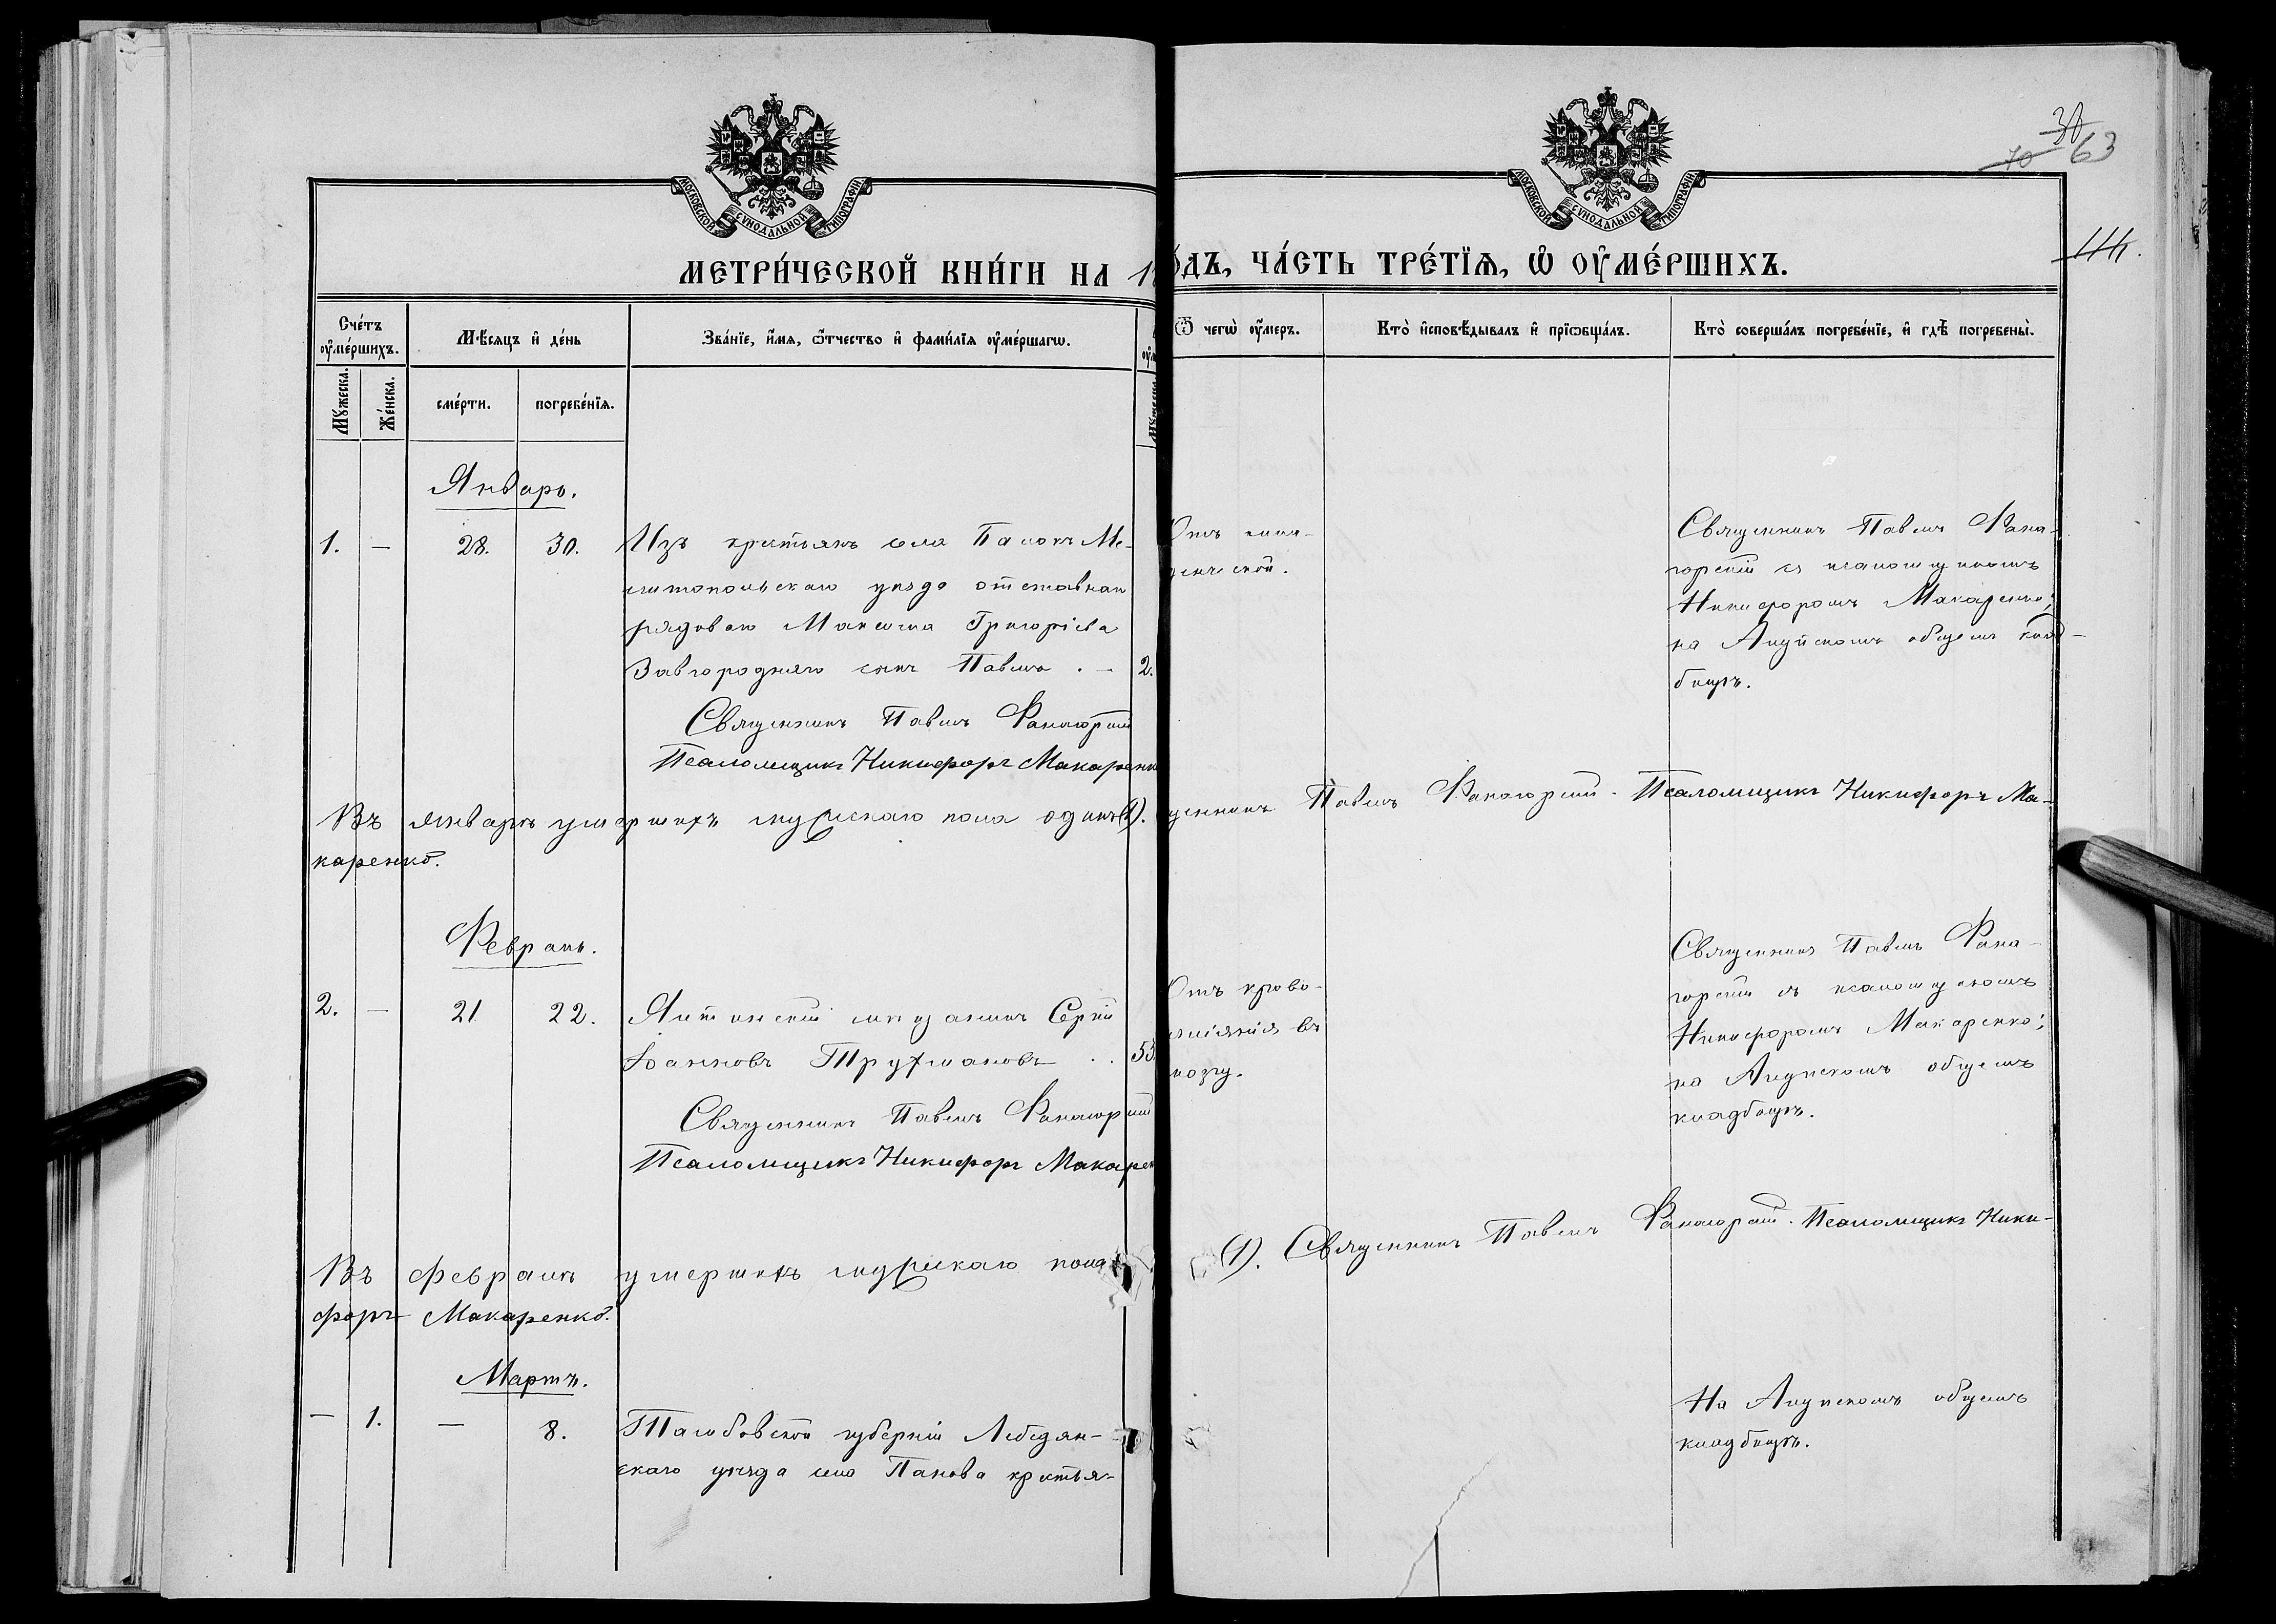 МОСКОВСКОЙ СѴНОДАЛЬНОЙ ТИПОГРАФІИ
МОСКОВСКОЙ СѴНОДАЛЬНОЙ ТИПОГРАФІИ
30
70 63
МЕТРИ́ЧЕСКОЙ КНИ́ГИ НА 1
ДЪ, ЧА́СТЬ ТРЕ́ТЇѦ, Ѡ ОУ҆МЕ́РШИХЪ.
Сче́тъ
оу҆ме́ршихъ.
Мѣ́сѧцъ и҆ де́нь
Зва́нїе, и҆́мѧ, ѻ҆́тчество и҆ фами́лїѧ оу҆ме́ршагѡ.
Ѿ чегѡ̀ оу҆́меръ.
Кто̀ и҆сповѣ́дывалъ и҆ прїѡбща́лъ.
Кто̀ соверша́лъ погребе́нїе, и҆ гдѣ̀ погребены̀.
Мꙋжеска.
Же́нска.
сме́рти.
погребе́нїѧ.
Январь.
1. — 28. 30. Изъ крестьянъ села Ме-
литопольскаго уѣзда отставнаго
рядового Максима Григоріева
Завгородняго сынъ Павелъ. — 2.
Священникъ Павелъ Фанагорскій
Псаломщикъ Никифоръ Макаренк
Отъ
денческой.
Священникъ Павелъ Фана-
горскій съ псаломщикомъ
Никифоромъ Макаренко;
на Алупскомъ общемъ клад-
бищѣ.
Въ январѣ умершихъ мужескаго пола одинъ (1).
щенникъ Павелъ Фанагорскій. Псаломщикъ Никифоръ Ма-
каренко.
Февраль.
2. — 21 22. Ялтинскій мѣщанинъ Сергій
Іоанновъ Трухмановъ . . 55
Священникъ Павелъ Фанагорскій
Псаломщикъ Никифоръ Макарен
Отъ крово-
изліянія въ
мозгу.
Священникъ Павелъ Фана-
горскій съ псаломщикомъ
Никифоромъ Макаренко;
на Алупскомъ общемъ
кладбищѣ.
Въ февралѣ умершихъ мужескаго пола
(1). Священникъ Павелъ Фанагорскій. Псаломщикъ Ники-
форъ Макаренко.
Мартъ.
— 1. — 8. Тамбовской губерніи Лебедян-
скаго уѣзда села Панова крестья-
На Алупскомъ общемъ
кладбищѣ.